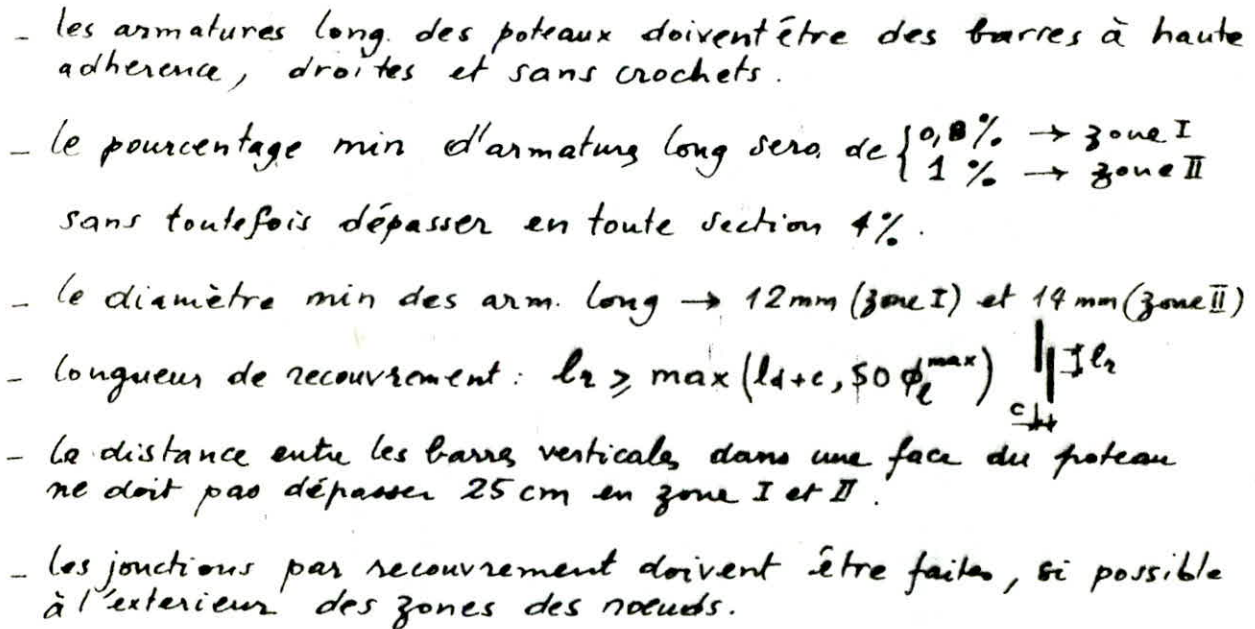 - les armatures long. des poteaux doivent être des barres à haute
adherence, droites et sans crochets.
- le pourcentage min d'armatures long sera de { 0,8 % → zone I
1 % → zone II
sans toutefois dépasser en toute section 4 %.
- le diamètre min des arm. long → 12 mm (zone I) et 14 mm (zone II)
- longueur de recouvrement : lr ≥ max (ld+c, 50 ϕl^max) lr
c
- la distance entre les barres verticales dans une face du poteau
ne doit pas dépasser 25 cm en zone I et II.
- les jonctions par recouvrement doivent être faites, si possible
à l'exterieur des zones des noeuds.